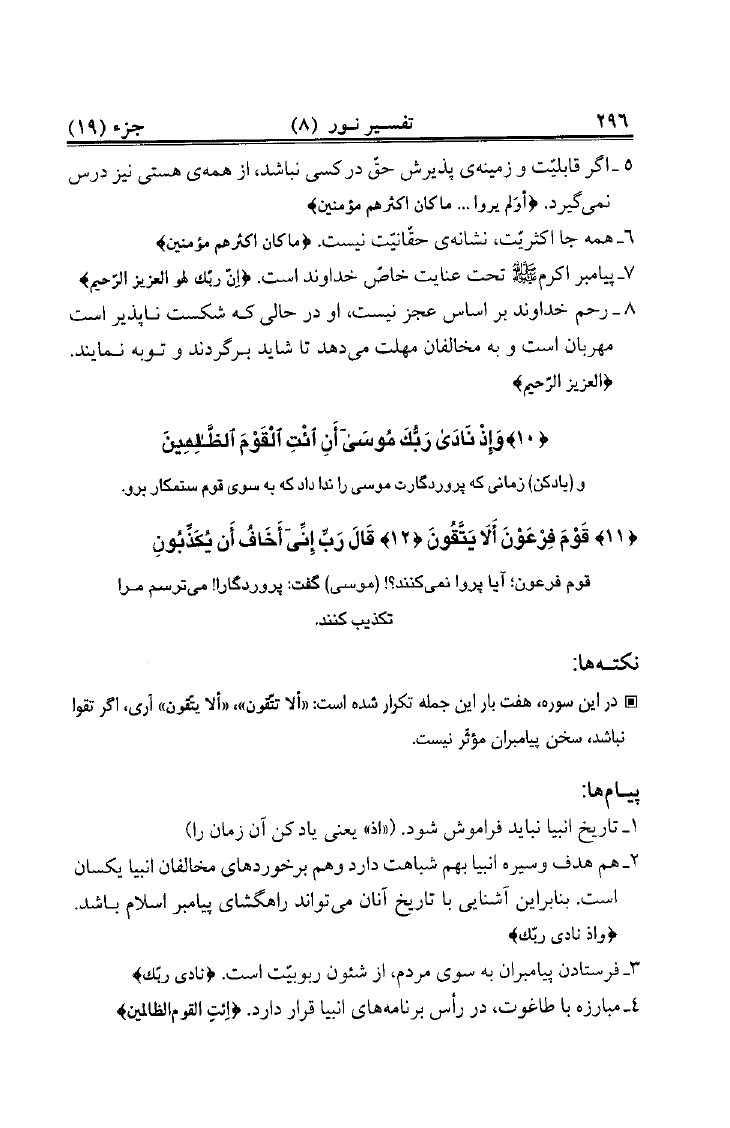 ۲۹۶ تفسیر نور (۸) جزء (۱۹)
۵ ـ اگر قابلیّت و زمینه‌ی پذیرش حقّ در کسی نباشد، از همه‌ی هستی نیز درس
نمی‌گیرد. ﴿أوَلم یروا ... ماکان اکثرهم مؤمنین﴾
٦ـ همه جا اکثریّت، نشانه‌ی حقّانیّت نیست. ﴿ماکان اکثرهم مؤمنین﴾
۷ـ پیامبر اکرم ﷺ تحت عنایت خاصّ خداوند است. ﴿اِنّ ربّك لهو العزیز الرّحیم﴾
۸ ـ رحم خداوند بر اساس عجز نیست، او در حالی که شکست ناپذیر است
مهربان است و به مخالفان مهلت می‌دهد تا شاید برگردند و توبه نمایند.
﴿العزیز الرّحیم﴾
﴿۱۰﴾ وَإِذْ نَادَىٰ رَبُّكَ مُوسَىٰٓ أَنِ ٱئْتِ ٱلْقَوْمَ ٱلظَّـٰلِمِينَ
و (یادکن) زمانی که پروردگارت موسی را ندا داد که به سوی قوم ستمکار برو.
﴿۱۱﴾ قَوْمَ فِرْعَوْنَ أَلَا يَتَّقُونَ ﴿۱۲﴾ قَالَ رَبِّ إِنِّىٓ أَخَافُ أَن يُكَذِّبُونِ
قوم فرعون؛ آیا پروا نمی‌کنند؟! (موسی) گفت: پروردگارا! می‌ترسم مرا
تکذیب کنند.
نکته‌ها:
▣ در این سوره، هفت بار این جمله تکرار شده است: «ألا تتّقون»، «ألا یتّقون» آری، اگر تقوا
نباشد، سخن پیامبران مؤثّر نیست.
پیام‌ها:
۱ـ تاریخ انبیا نباید فراموش شود. («اذ» یعنی یاد کن آن زمان را)
۲ـ هم هدف وسیره انبیا بهم شباهت دارد وهم برخوردهای مخالفان انبیا یکسان
است. بنابراین آشنایی با تاریخ آنان می‌تواند راهگشای پیامبر اسلام باشد.
﴿واذ نادی ربّك﴾
۳ـ فرستادن پیامبران به سوی مردم، از شئون ربوبیّت است. ﴿نادی ربّك﴾
٤ـ مبارزه با طاغوت، در رأس برنامه‌های انبیا قرار دارد. ﴿اِئتِ القوم الظالمین﴾